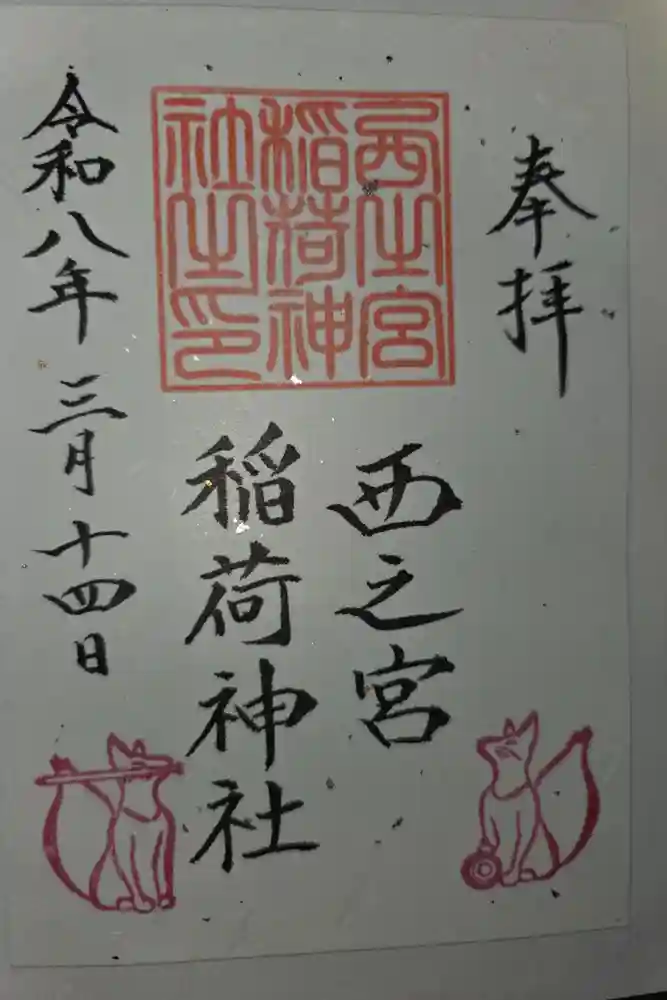 奉拝
西之宮
稲荷神
社之印
西之宮
稲荷神社
令和八年三月十四日